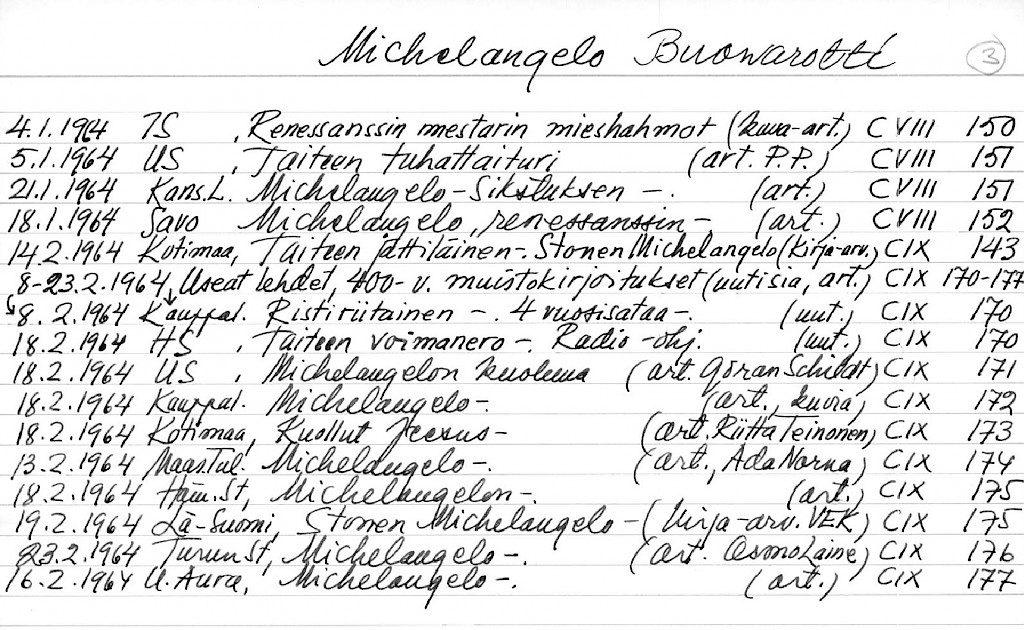 Michelangelo Buonarotti 3
4.1.1964 IS , Renessanssin mestarin mieshahmot (kuva-art.) CVIII 150
5.1.1964 US , Taiteen tuhattaituri (art. P.P.) CVIII 151
21.1.1964 Kans.L. Michelangelo - Sikstuksen -. (art.) CVIII 151
18.1.1964 Savo Michelangelo, renessanssin - (art.) CVIII 152
14.2.1964 Kotimaa, Taiteen jättiläinen - Stonen Michelangelo (kirja-arv.) CIX 143
8-23.2.1964, Useat lehdet, 400-v. muistokirjoitukset (uutisia, art.) CIX 170-177
8.2.1964 Kauppal. Ristiriitainen -. 4 vuosisataa -. (uut.) CIX 170
18.2.1964 HS , Taiteen voimanero -. Radio-ohj. (uut.) CIX 170
18.2.1964 US , Michelangelon kuolema (art. Göran Schildt) CIX 171
18.2.1964 Kauppal. Michelangelo -. (art., kuvia) CIX 172
18.2.1964 Kotimaa, Kuollut Jeesus - (art. Riitta Teinonen) CIX 173
13.2.1964 Maas.Tul. Michelangelo -. (art., Ada Norna) CIX 174
18.2.1964 Häm.St, Michelangelon -. (art.) CIX 175
19.2.1964 Lä-Suomi, Stonen Michelangelo - (kirja-arv. VEK) CIX 175
23.2.1964 Turun St, Michelangelo -. (art. Osmo Laine) CIX 176
16.2.1964 U.Aura, Michelangelo -. (art.) CIX 177